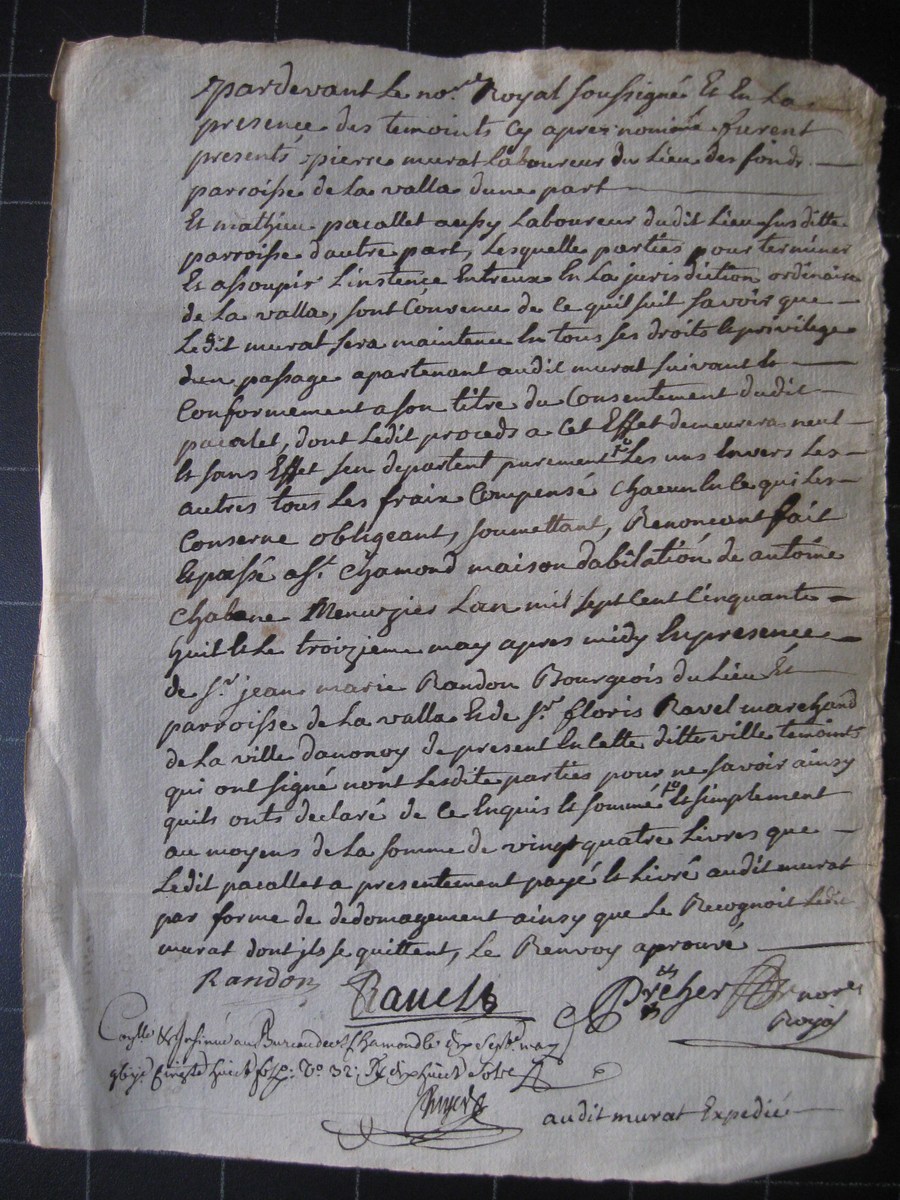 pardevant Le nore Royal soussigné Et En La
presence des temoints cy apres nommé furent
presents, pierre murat Laboureur du Lieu des fonds
parroisse de La valla dune part
Et mathieu pacallet aussy Laboureur dudit Lieu susditte
parroisse dautre part, Lesquelle parties pour terminer
Et assoupir L'instence Entreux En La jurisdiction ordinaire
de La valla, sont Convenu de ce quil suit savoir que
Ledit murat sera maintenu En tous ses droits Le privilege
dun passage apartenant audit murat suivant Et
Conformement a son titre du Consentement dudit
pacalet, dont Ledit proceds a cet Effet demeurera nul
Et sans Effet sen departent purement Les uns Envers Les
autres tous Les fraix Compensé chacun En ce qui Les
Conserne obligeant, soumettant, Renoncant fait
Et passé a St. chamond maison dabitation de antoine
Menuzier Lan mil sept Cent Cinquante
huit Et Le troizieme may apres midy En presence
de Sr. jean marie Randon Bourgeois du Lieu Et
parroisse de La valla Et de Sr. floris Ravel marchand
de La ville danonoy de present En cette ditte ville temoints
qui ont signé nont Lesdite parties pour ne savoir ainsy
quils onts declaré de ce Enquis Et sommé Et simplement
au moyens de La somme de vingt quatre Livres que
Ledit pacallet a presentement payé Et Livré audit murat
par forme de dedomagement ainsy que Le Recognoit Ledit
murat dont jls se quittent, Le Renvoy aprouvé
Randon Ravel nore
Royal
au Bureau de St chamond le may
audit murat Expedié